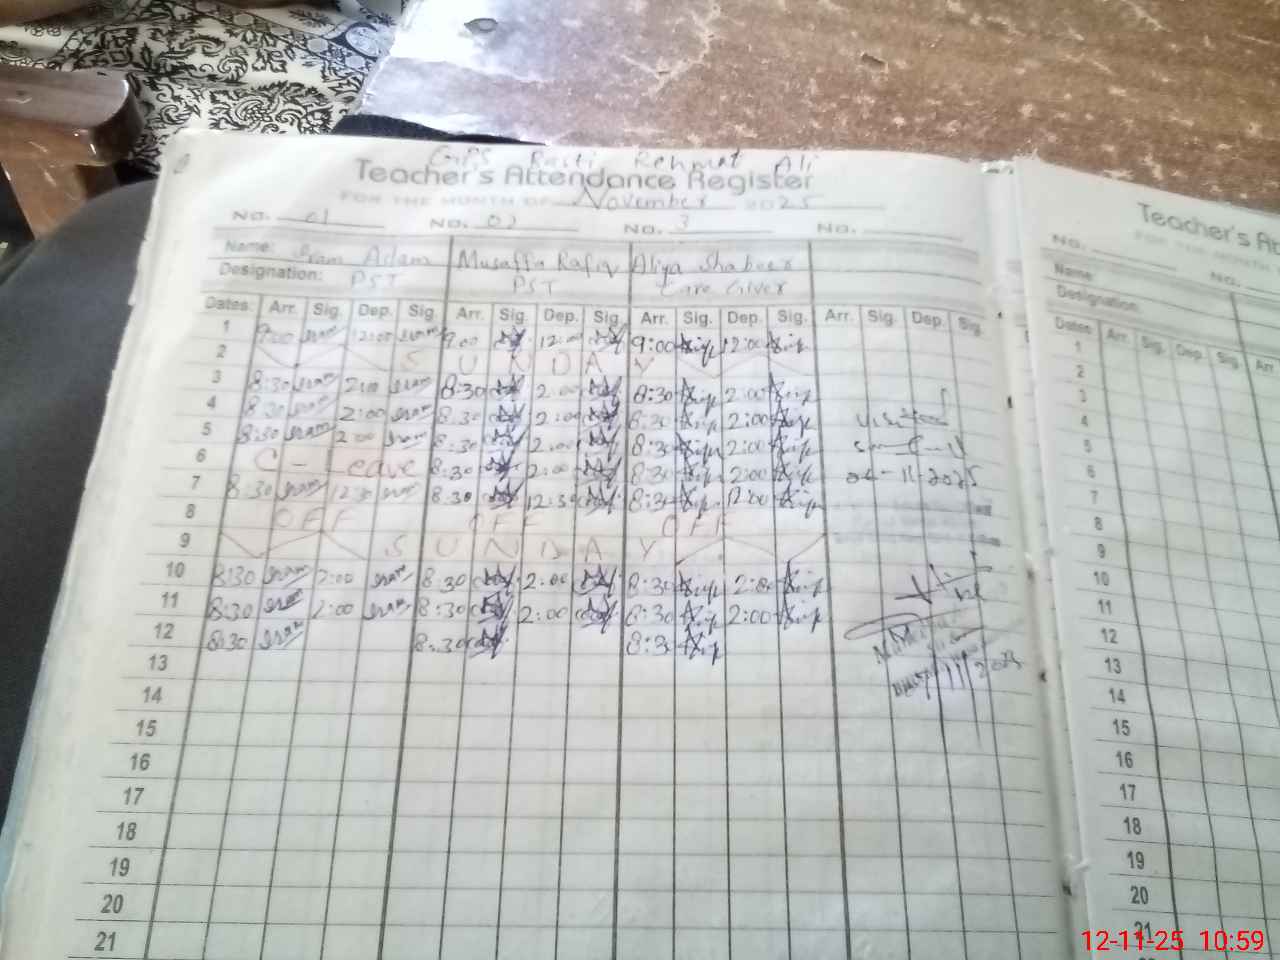 GPS Basti Rehmat Ali
Teacher's Attendance Register
FOR THE MONTH OF November 2025
No. 01 No. 02 No. 3 No.
Name: Iram Aslam Musaffa Rafiq Aliya Shabeer
Designation: PST PST Care Giver
Dates Arr. Sig. Dep. Sig. Arr. Sig. Dep. Sig. Arr. Sig. Dep. Sig. Arr. Sig. Dep. Sig.
1 9:00 Iram 12:00 Iram 9:00 12:00 9:00 12:00
2 S U N D A Y
3 8:30 Iram 2:00 Iram 8:30 2:00 8:30 2:00
4 8:30 Iram 2:00 Iram 8:30 2:00 8:30 2:00
5 8:30 Iram 2:00 Iram 8:30 2:00 8:30 2:00
6 C - Leave 8:30 2:00 8:30 2:00
7 8:30 Iram 12:30 Iram 8:30 12:30 8:30 12:00
8 OFF OFF OFF
9 S U N D A Y
10 8:30 Iram 2:00 Iram 8:30 2:00 8:30 2:00
11 8:30 Iram 2:00 Iram 8:30 2:00 8:30 2:00
12 8:30 Iram 8:30 8:30
13
14
15
16
17
18
19
20
21
-11-2025
Teacher's At
No. No.
Name:
Designation:
Dates Arr. Sig. Dep. Sig. Arr.
1
2
3
4
5
6
7
8
9
10
11
12
13
14
15
16
17
18
19
20
21
12-11-25 10:59